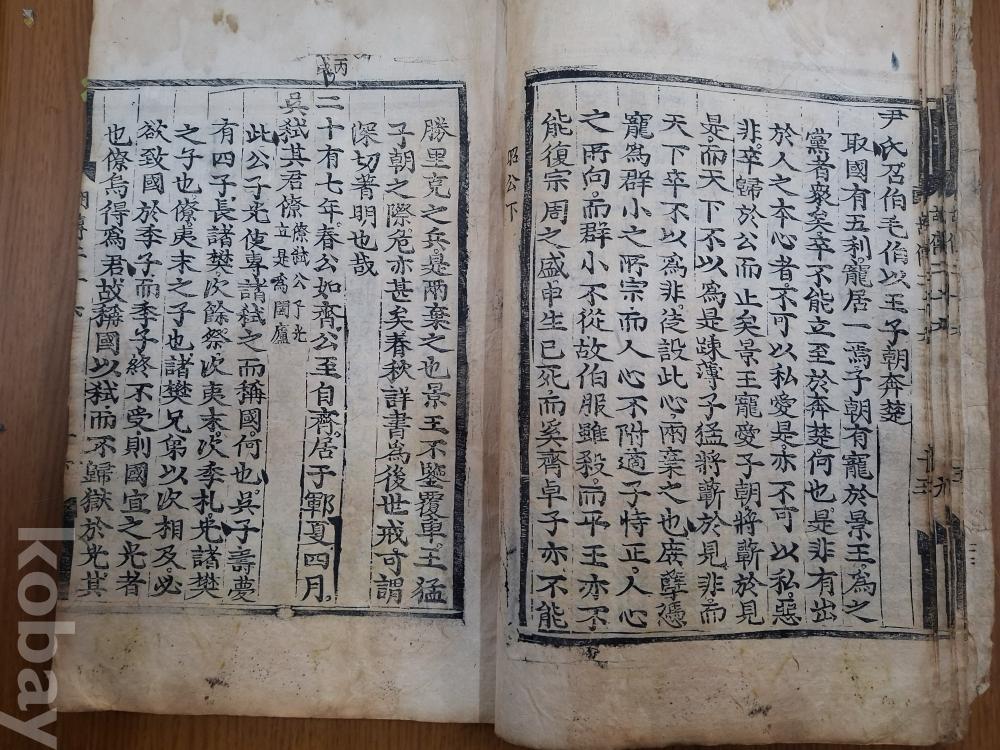 尹氏召伯毛伯以王子朝奔楚
取國有五利寵居一焉子朝有寵於景王為之
黨者衆矣卒不能立至於奔楚何也是非有出
於人之本心者不可以私愛是亦不可以私惡
非卒歸於公而止矣景王寵愛子朝將蘄於見
是而天下不以為是踈薄子猛將蘄於見非而
天下卒不以為非徒設此心兩棄之也庶孽憑
寵為群小之所宗而人心不附適子恃正人心
之所向而群小不從故伯服雖殺而平王亦不
能復宗周之盛申生已死而奚齊卓子亦不能
昭公下
勝里克之兵是兩棄之也景王不鑒覆車王猛
子朝之際危亦甚矣春秋詳書為後世戒可謂
深切著明也哉
丙戌
二十有七年春公如齊公至自齊居于鄆夏四月
吳弒其君僚
僚弒公子光
立是為闔廬
此公子光使專諸弒之而稱國何也吳子壽夢
有四子長諸樊次餘祭次夷末次季札光諸樊
之子也僚夷末之子也諸樊兄弟以次相及必
欲致國於季子而季子終不受則國宜之光者
也僚烏得為君故稱國以弒而不歸獄於光其
kobay